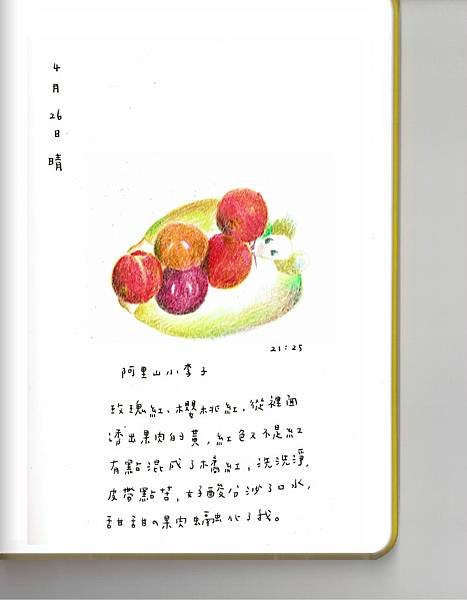 4月26日 晴
21:25
阿里山小李子
玫瑰紅、櫻桃紅、從裡面
透出果肉的黃,紅色又不是紅
有點混成了橘紅,洗洗淨,
皮帶點苦,好酸分沙了口水,
甜甜的果肉融化了我。